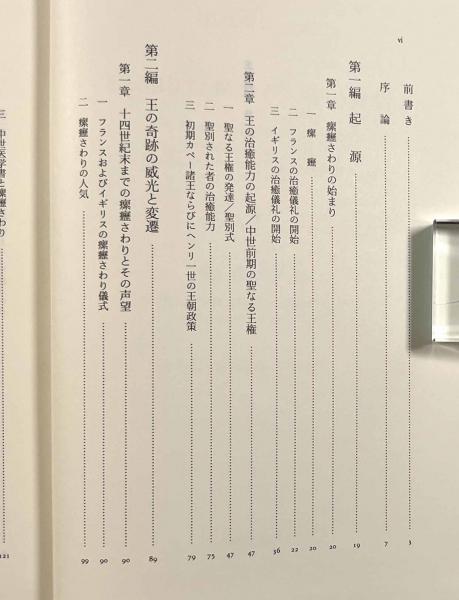 vi
前書き 3
序論 7
第一編 起源 19
第一章 瘰癧さわりの始まり 20
一 瘰癧 20
二 フランスの治癒儀礼の開始 22
三 イギリスの治癒儀礼の開始 36
第二章 王の治癒能力の起源／中世前期の聖なる王権 47
一 聖なる王権の発達／聖別式 47
二 聖別された者の治癒能力 75
三 初期カペー諸王ならびにヘンリ一世の王朝政策 79
第二編 王の奇跡の威光と変遷 89
第一章 十四世紀末までの瘰癧さわりとその声望 90
一 フランスおよびイギリスの瘰癧さわり儀式 90
二 瘰癧さわりの人気 99
三 中世医学書と瘰癧さわり 121